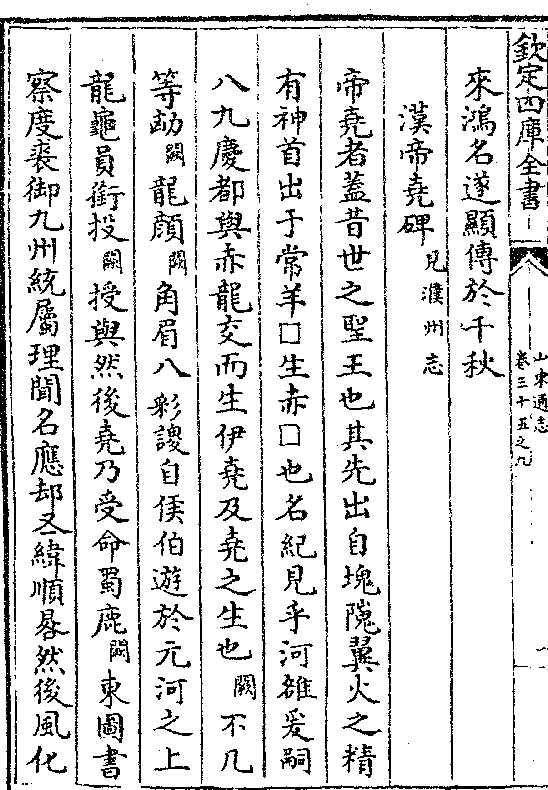 欽定四庫全書
山東通志
卷三十五之九
來鴻名遂顯傳於千秋
漢帝堯碑見濮州志
帝堯者蓋昔世之聖王也其先出自塊隗翼火之精
有神首出于常羊□生赤□也名紀見乎河雒爰嗣
八九慶都與赤龍交而生伊堯及堯之生也闕不凡
等劫闕龍顔闕角眉八彩謖自侯伯遊於元河之上
龍龜員銜投闕授與然後堯乃受命蜀鹿闕東圖書
察度衮御九州統屬理聞名應却五緯順晷然後風化